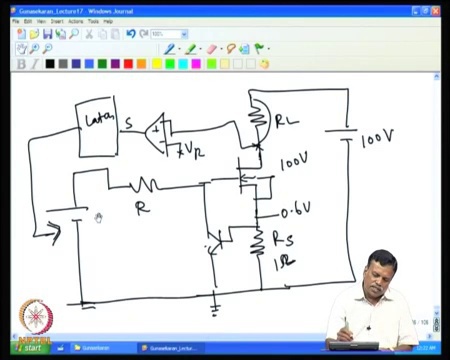 Gunasekaran_Lecture17 - Windows Journal
File Edit View Insert Actions Tools Help
100%
B I
Latch
S
+
VR
RL
100V
100V
R
0.6V
RS
1Ω
start
Gunasekaran
Gunasekaran_Lectur...